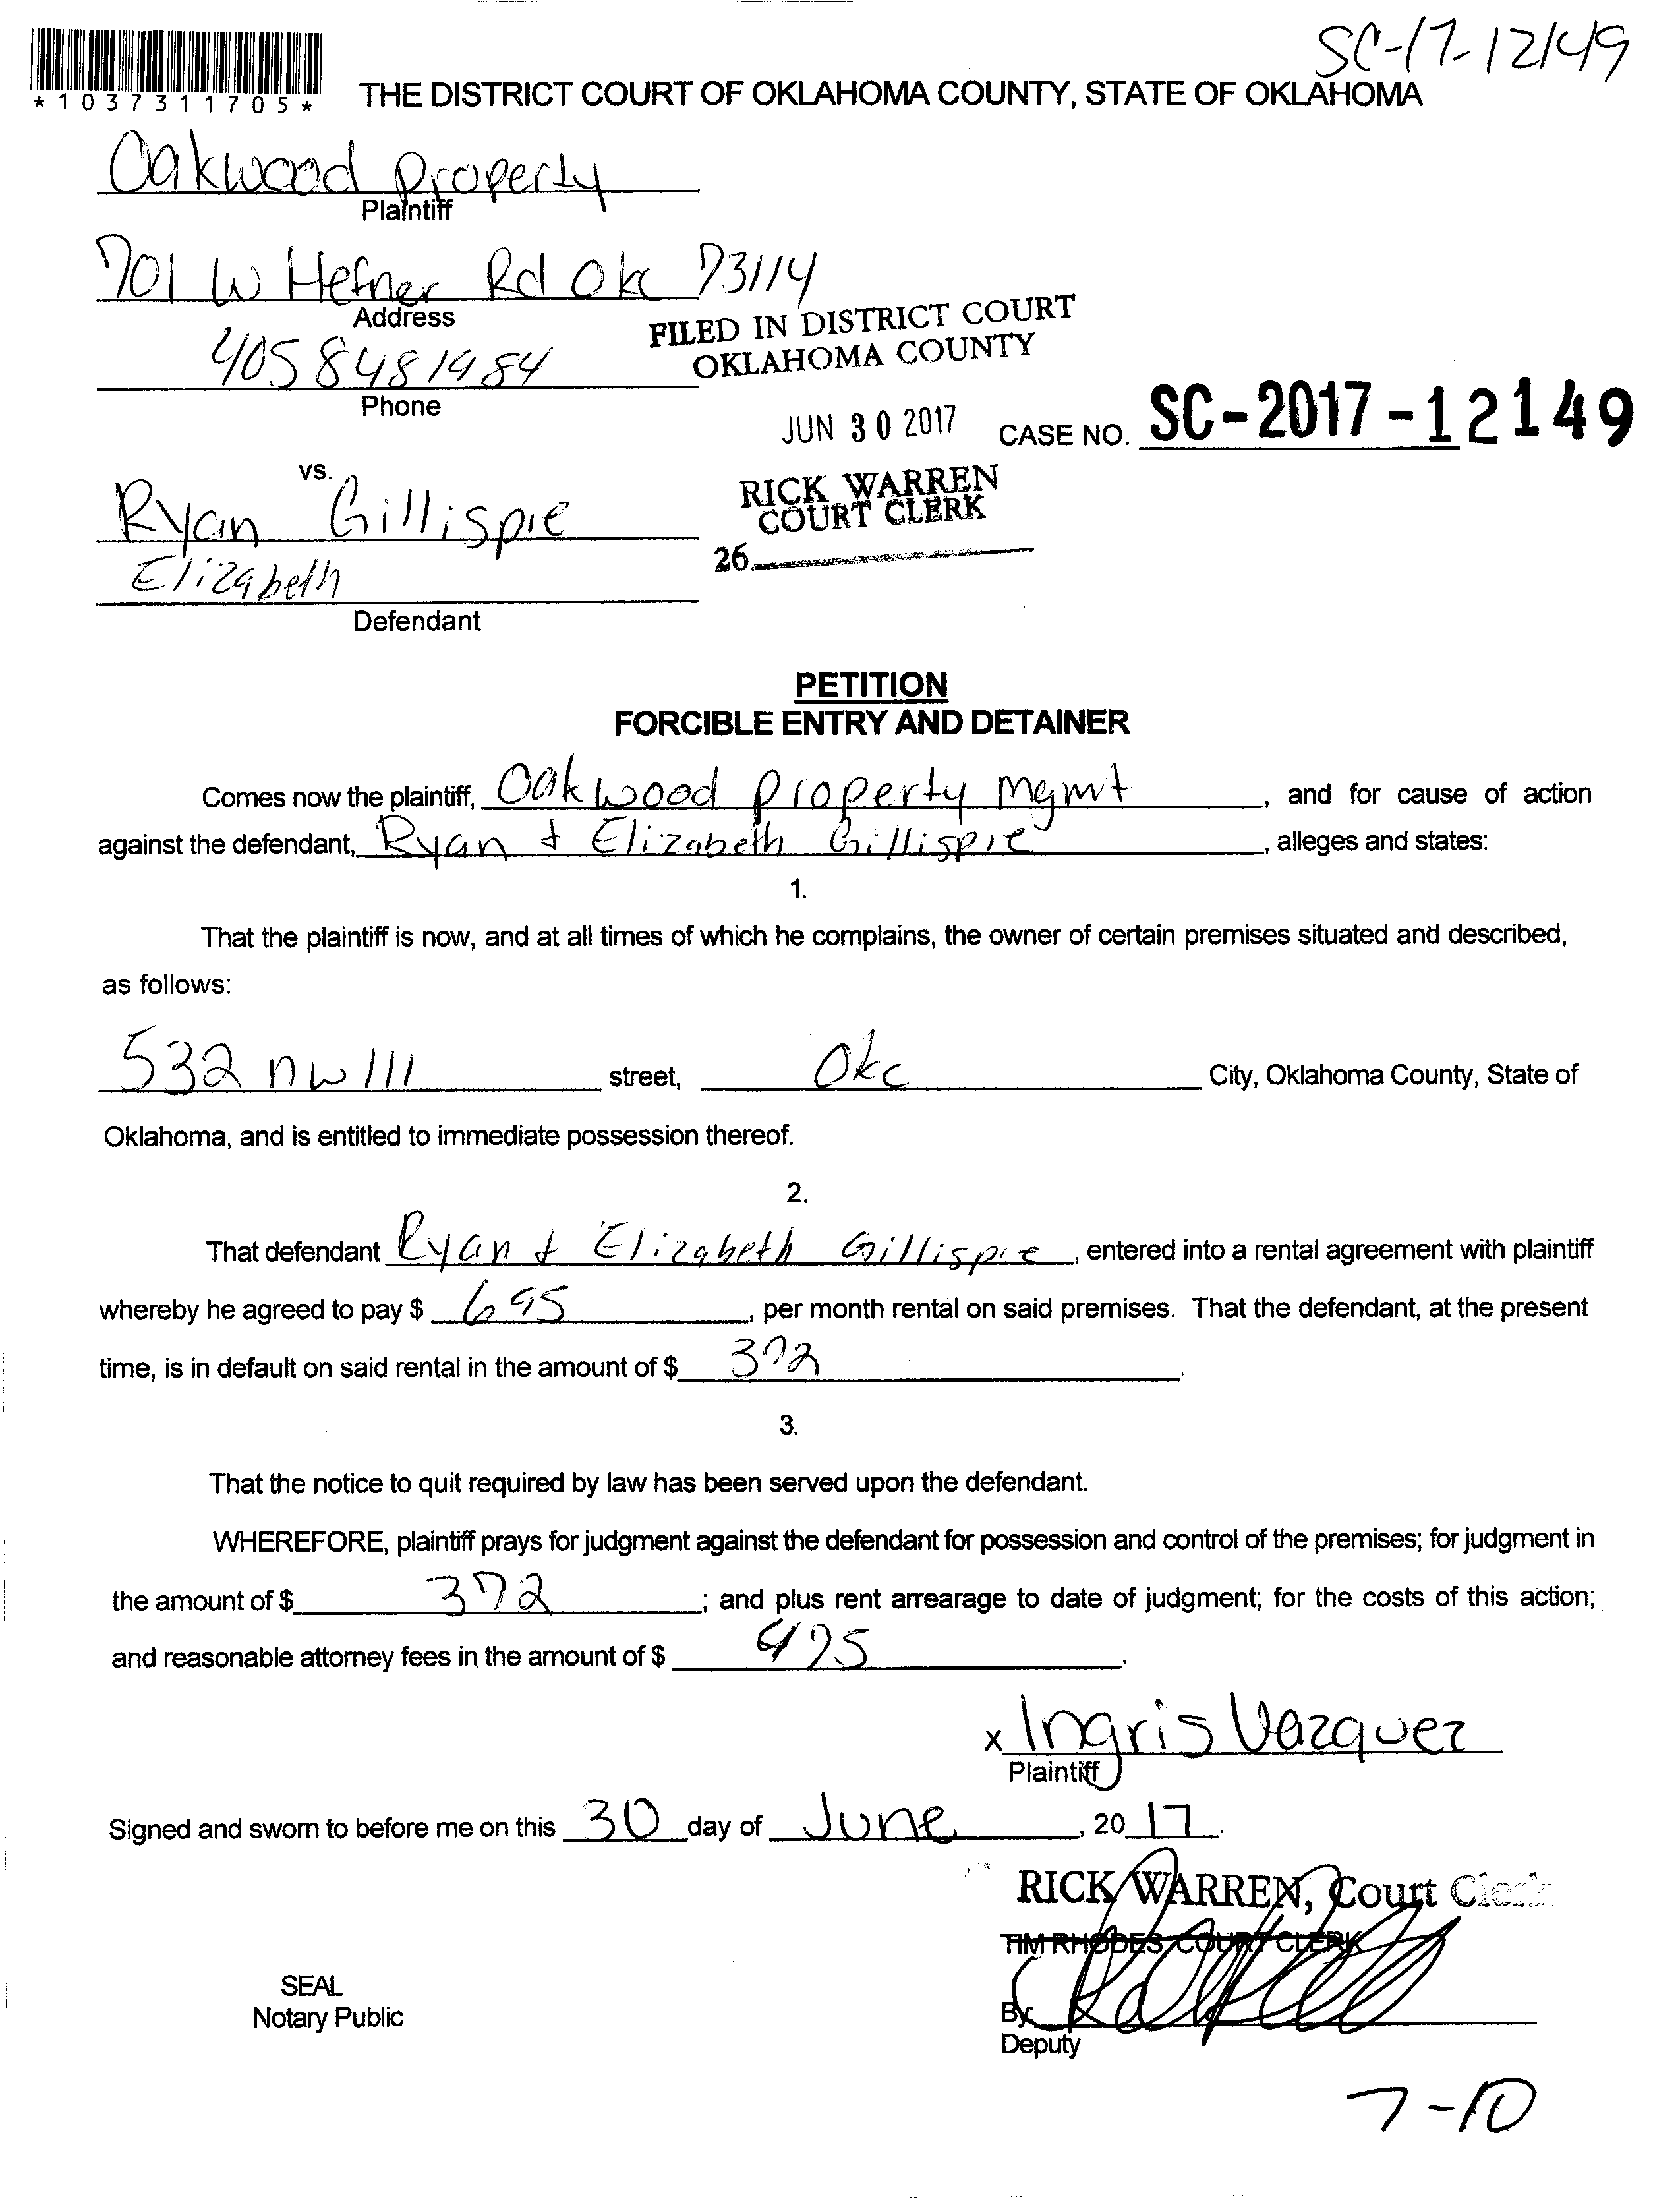 SC-17-12149
*1037311705*
THE DISTRICT COURT OF OKLAHOMA COUNTY, STATE OF OKLAHOMA
Oakwood Property
Plaintiff
701 W Hefner Rd Okc 73114
Address
FILED IN DISTRICT COURT
OKLAHOMA COUNTY
4058481984
Phone
JUN 30 2017
CASE NO. SC-2017-12149
vs.
RICK WARREN
COURT CLERK
Ryan Gillispie
26
Elizabeth
Defendant
PETITION
FORCIBLE ENTRY AND DETAINER
Comes now the plaintiff, Oakwood Property Mgmt, and for cause of action
against the defendant, Ryan + Elizabeth Gillispie, alleges and states:
1.
That the plaintiff is now, and at all times of which he complains, the owner of certain premises situated and described,
as follows:
532 nw 111 street, Okc City, Oklahoma County, State of
Oklahoma, and is entitled to immediate possession thereof.
2.
That defendant Ryan + Elizabeth Gillispie, entered into a rental agreement with plaintiff
whereby he agreed to pay $ 695, per month rental on said premises. That the defendant, at the present
time, is in default on said rental in the amount of $ 372.
3.
That the notice to quit required by law has been served upon the defendant.
WHEREFORE, plaintiff prays for judgment against the defendant for possession and control of the premises; for judgment in
the amount of $ 372; and plus rent arrearage to date of judgment; for the costs of this action;
and reasonable attorney fees in the amount of $ 475.
x Ingris Vazquez
Plaintiff
Signed and sworn to before me on this 30 day of June, 2017.
RICK WARREN, Court Clerk
TIM RHODES, COURT CLERK
SEAL
Notary Public
By
Deputy
7-10